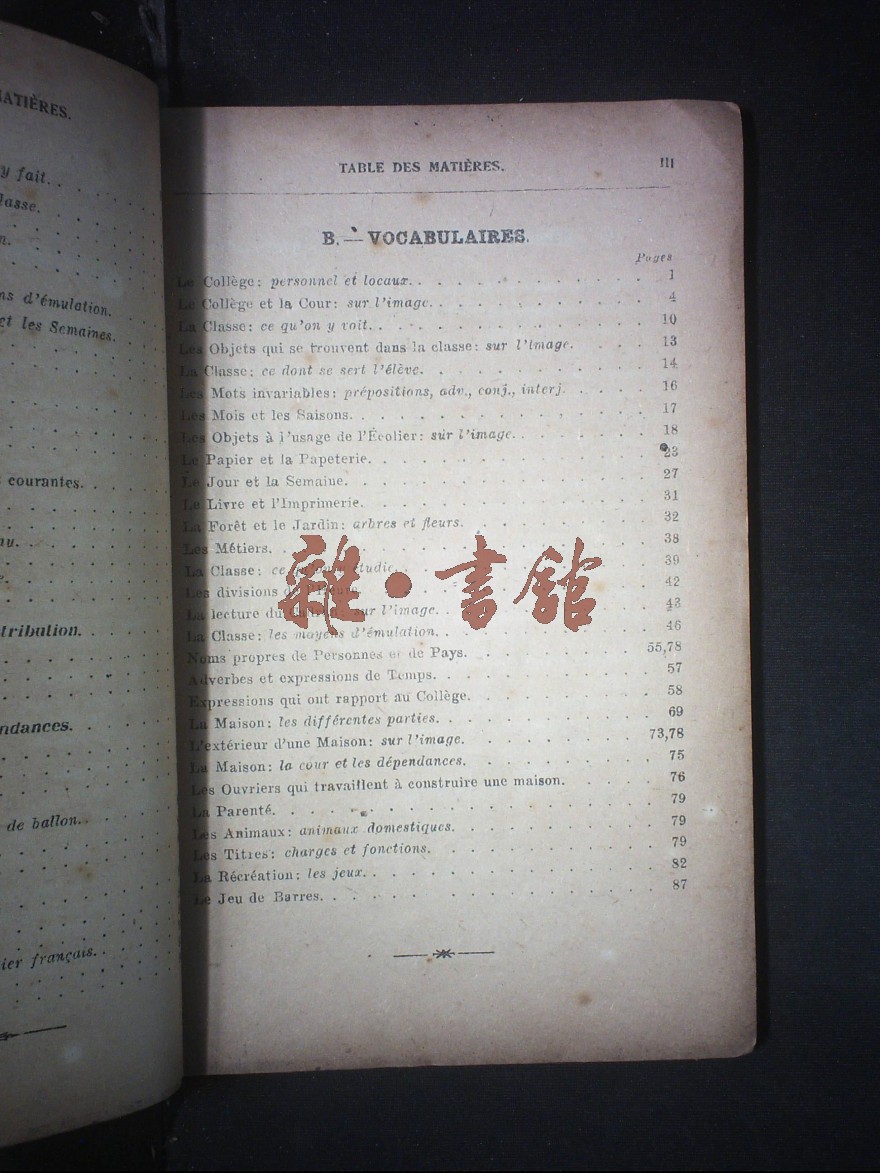 MATIÈRES.
y fait.
lasse.
n.
ns d'émulation.
et les Semaines.
courantes.
nu.
tribution.
ndances.
de ballon.
ier français.
TABLE DES MATIÈRES. III
B. — VOCABULAIRES.
Pages
Le Collège: personnel et locaux. 1
Le Collège et la Cour: sur l'image. 4
La Classe: ce qu'on y voit. 10
Les Objets qui se trouvent dans la classe: sur l'image. 13
La Classe: ce dont se sert l'élève. 14
Les Mots invariables: prépositions, adv., conj., interj. 16
Les Mois et les Saisons. 17
Les Objets à l'usage de l'Écolier: sur l'image. 18
Le Papier et la Papeterie. 23
Le Jour et la Semaine. 27
Le Livre et l'Imprimerie. 31
La Forêt et le Jardin: arbres et fleurs. 32
Les Métiers. 38
La Classe: ce étudie. 39
Les divisions de 42
La lecture du sur l'image. 43
La Classe: les moyens d'émulation. 46
Noms propres de Personnes et de Pays. 55,78
Adverbes et expressions de Temps. 57
Expressions qui ont rapport au Collège. 58
La Maison: les différentes parties. 69
L'extérieur d'une Maison: sur l'image. 73,78
La Maison: la cour et les dépendances. 75
Les Ouvriers qui travaillent à construire une maison. 76
La Parenté. 79
Les Animaux: animaux domestiques. 79
Les Titres: charges et fonctions. 79
La Récréation: les jeux. 82
Le Jeu de Barres. 87
雜·書館